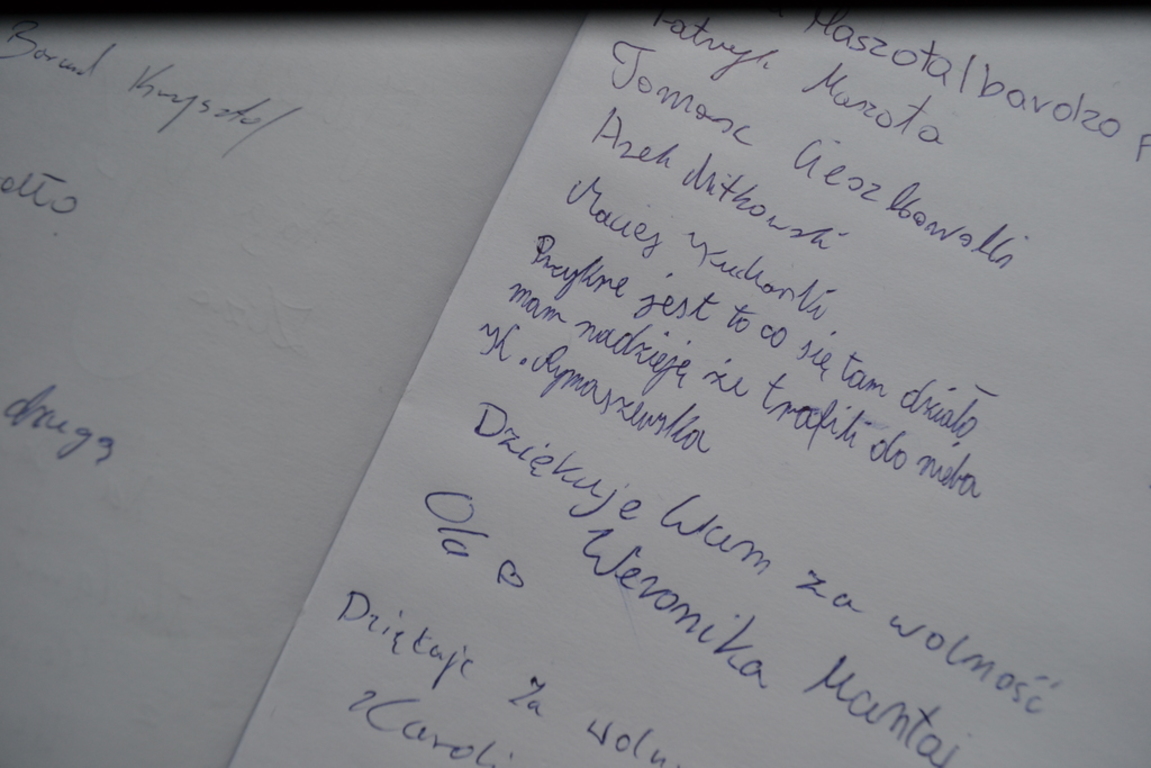 Krzysztof
drugą
Maszota / bardzo
Patryk Mazota
Tomasz Cieszkowski
Arek Mitkowski
Maciej
Przykre jest to co się tam działo,
mam nadzieję że trafili do nieba
K. Rymaszewska
Dziękuję Wam za wolność
Ola Weronika Mantaj
Dziękuję za
Karoli